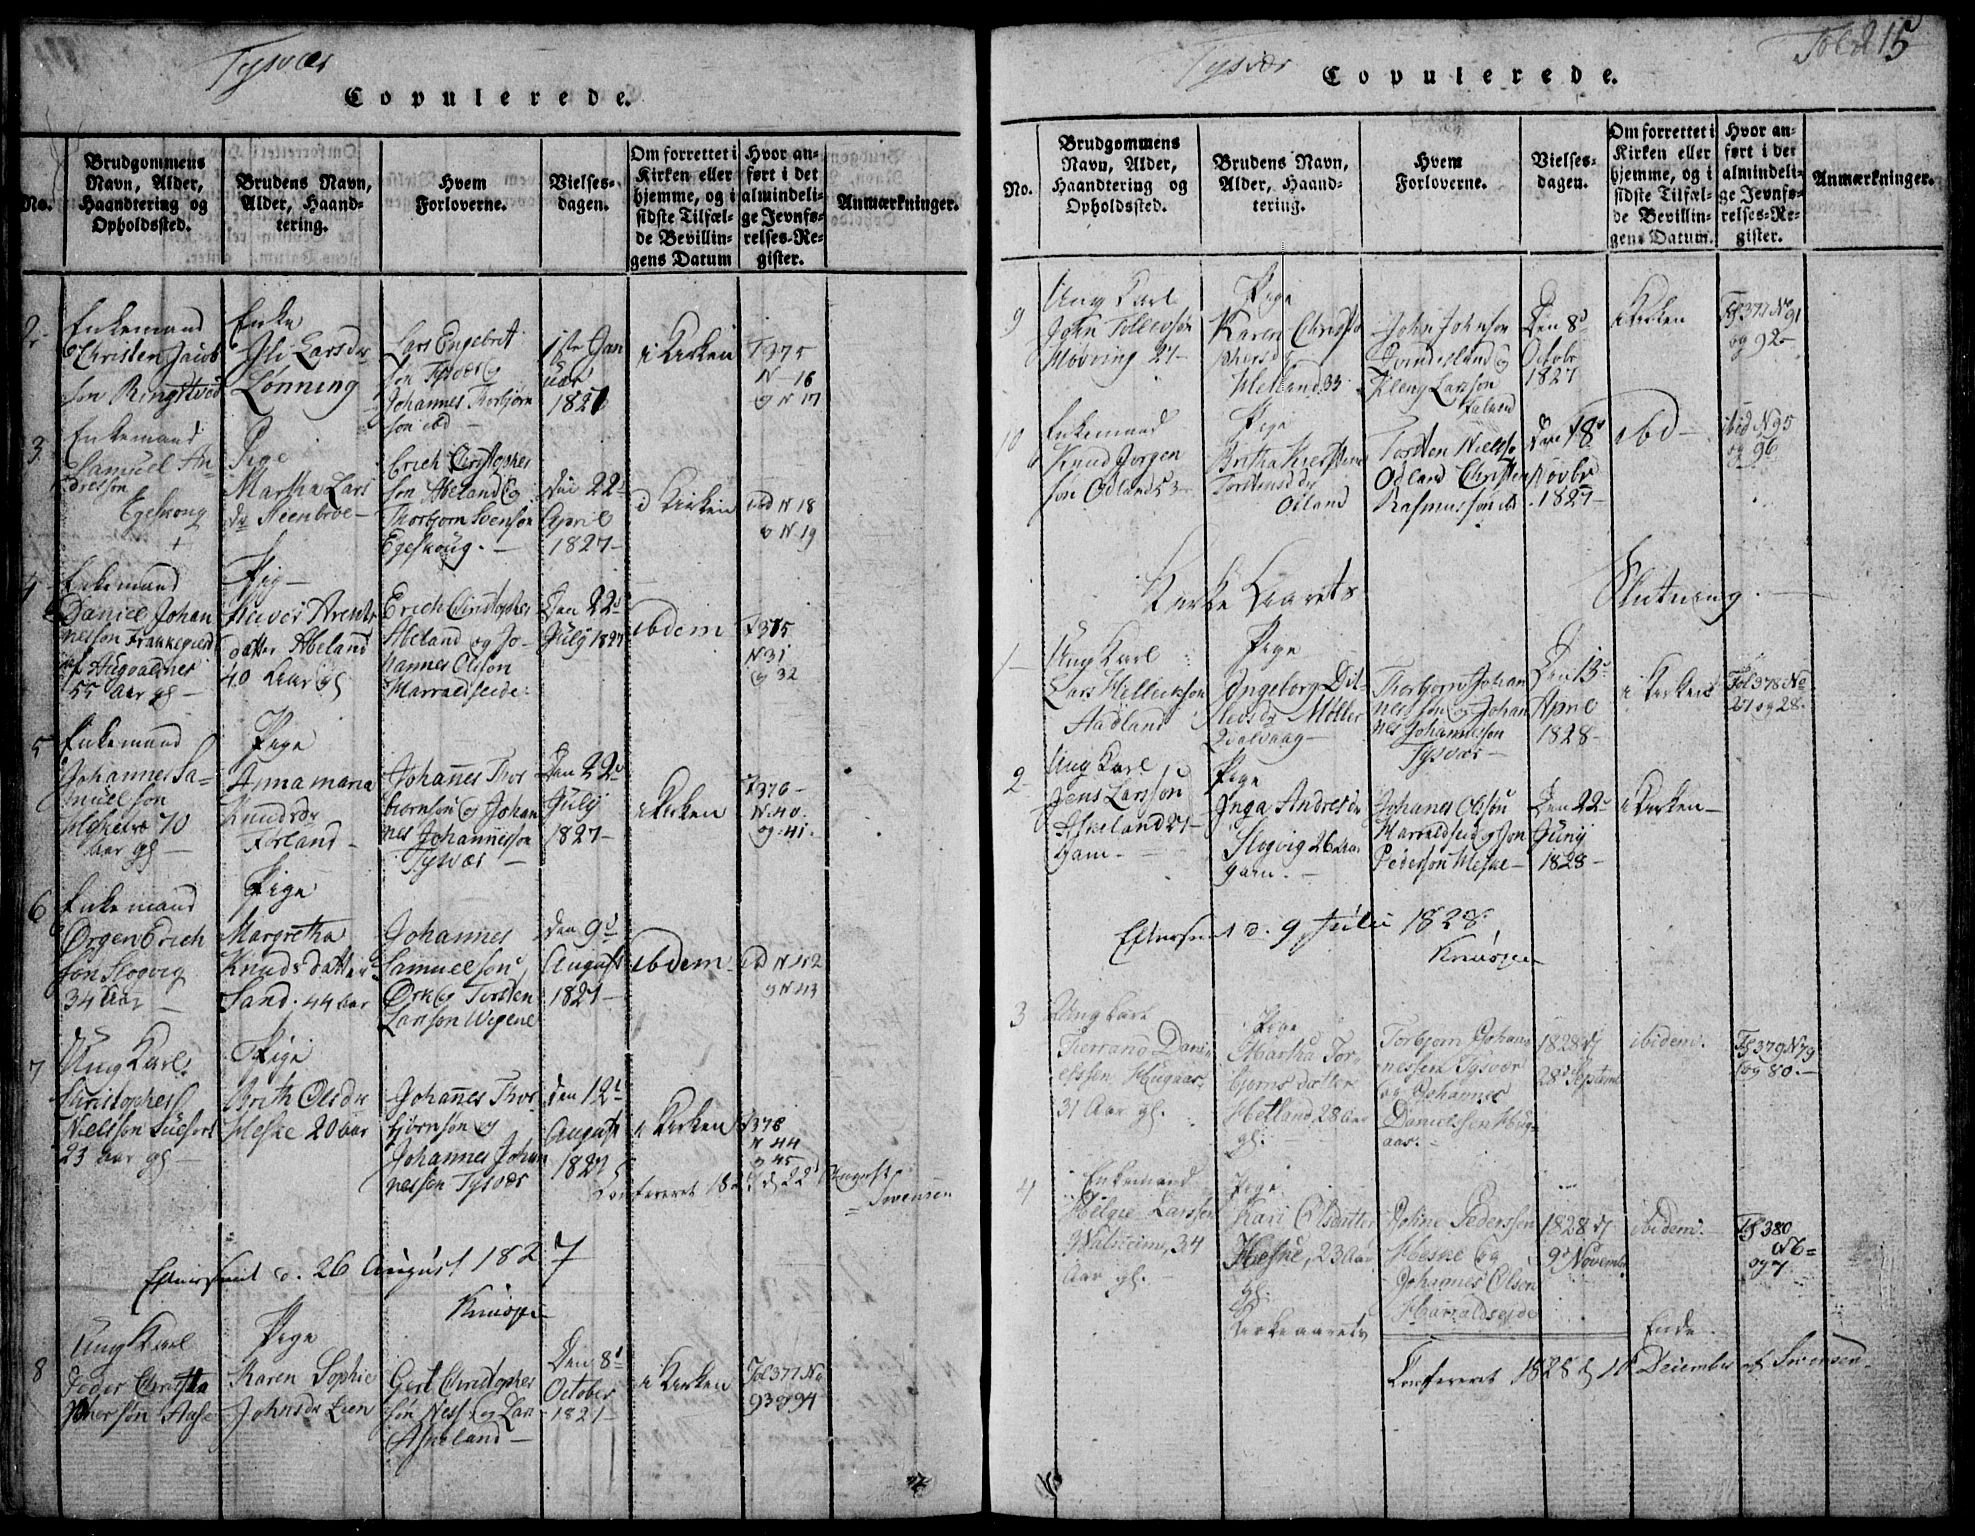 Tysvær
Copulerede.
No.
Brudgommens
Navn, Alder,
Haandtering og
Opholdssted.
Brudens Navn,
Alder, Haand-
tering.
Hvem
Forloverne.
Vielses-
dagen.
Om forrettet i
Kirken eller
hjemme, og i
sidste Tilfæl-
de Bevillin-
gens Datum
Hvor an-
ført i det
almindeli-
ge Jevnfø-
relses-Re-
gister.
Anmærkninger.
2
Enkemand
Christen Jacob
sön Ringstved
Enke
Lönning
Lars Engebrit
sön Tysvær og
Johannes Thorbjörn
sön ibd
1ste Jan
uar
1827
i Kirken
F 375
N 16
og N 17
3
Enkemand
Samuel An
dreson
Egeskoug
Pige
Martha Lars
dr Steenbroe
Erich Christopher
sön Abeland og
Thorbjorn Svenson
Egeskoug.
Den 22
April
1827
i Kirken
ibd N 18
og N 19
4
Enkemand
Daniel Johan
nesson
af Augvaldnes
55 Aar gl
Pige
datter Abeland
40 Aar gl
Erich Christopher
Abeland og Jo-
hannes Olsön
Marvaldseide
Den 22d
July 1827
ibdem
F 375
N 31
og 32
5
Enkemand
Johannes Sa-
muelsön
70
Aar gl
Pige
Anna maria
Knudsdr
Förland
Johannes Thor
biornson og Johan
nes Johannesson
Tysvær
Den 22d
July
1827
i Kirken
F 376
N. 40.
og 41.
6
Enkemand
Örgen Erich
sön Slogvig
34 Aar
Pige
Margretha
Knudsdatter
Sand. 44 Aar
Johannes
Samuelson
Örke og Torsten
Larsson Wigene
Den 9d
August
1827
ibdem
ibd N 42
og N 43
7
Ung Karl
Christopher
Nielssön
23 Aar gl
Pige
Brith Olsdr
Heske 20 Aar
Johannes Thor
bjornsön og
Johannes Johan
nesson Tysvær
Den 12d
August
1827
i Kirken
F 376
N 44
og 45
Confereret d. 22 August
Sörensen
Efterseet d. 26 August 1827
8
Ung Karl
Peder Christo
phersön Aase
Pige
Karen Sophie
Johnsdr Leen
Gert Christopher
sön Nes og Lars
Askeland
Den 8d
October
1827
i Kirken
Fol 377 No
93 og 94
Tysvær
Copulerede.
Fol 215
No.
Brudgommens
Navn, Alder,
Haandtering og
Opholdssted.
Brudens Navn,
Alder, Haand-
tering.
Hvem
Forloverne.
Vielses-
dagen.
Om forrettet i
Kirken eller
hjemme, og i
sidste Tilfæl-
de Bevillin-
gens Datum.
Hvor an-
ført i det
almindeli-
ge Jevnfø-
relses-Re-
gister.
Anmærkninger.
9
Ung Karl
John Tollevsön
Mövring 27
Pige
Karen Christo
phersdr
Hetland 33
John Johnson
og
Pleny Larsson
Faland
Den 8d
Octobr
1827
i Kirken
F 377 No 91
og 92
10
Enkemand
Knud Jörgen
sön Odland 53
Pige
Britha Kierstine
Torstensdr
Odland
Torsten Nielsø
Odland Christen
Rasmussön ibd
Den 18d
Novbr
1827
ibd
ibid N 95
og 96
Kirke Aarets
Slutning.
1
Ung Karl
Lars Hellieksön
Aadland
Pige
Ingeborg Dit-
levsdr Möller
Qvalvaag
Thorbjorn Johan
nessön og Johan
nes Johannesson
Tysvær
Den 13d
April
1828
i Kirken
Fol 378 No
27 og 28.
2
Ung Karl
Jens Larssön
Askeland 27
gam.
Pige
Inga Andresdr
Slogvig 26 Aar
gam.
Johanes Olsön
Marvaldseid og Jon
Pedersön Heske
Den 22d
Juny
1828
i Kirken
Efterseet d. 9 Julii 1828.
3
Ung Karl
Danie-
lssen Hugaas
31 Aar gl.
Pige
Martha Tor-
bjorns datter
Hetland, 28 Aar
gl.
Torbjorn Johan-
nessen Tysvær
og Johannes
Danielssen Hug-
aas.
1828 d.
28d Septemb
ibidem.
F 379 N 79
og 80.
4
Enkemand
Helgie Larssen
34
Aar gl.
Pige
Kari Olsdatter
Heske, 23 Aar
gl.
Johne Pederssen
Heske og
Johannes Olsen
Marvaldseide
1828 d
9d Novembr
ibidem.
F 380
N 6
og 7
Kirkeaarets
Ende
Confereret 1828 d 11 December af Sörensen.